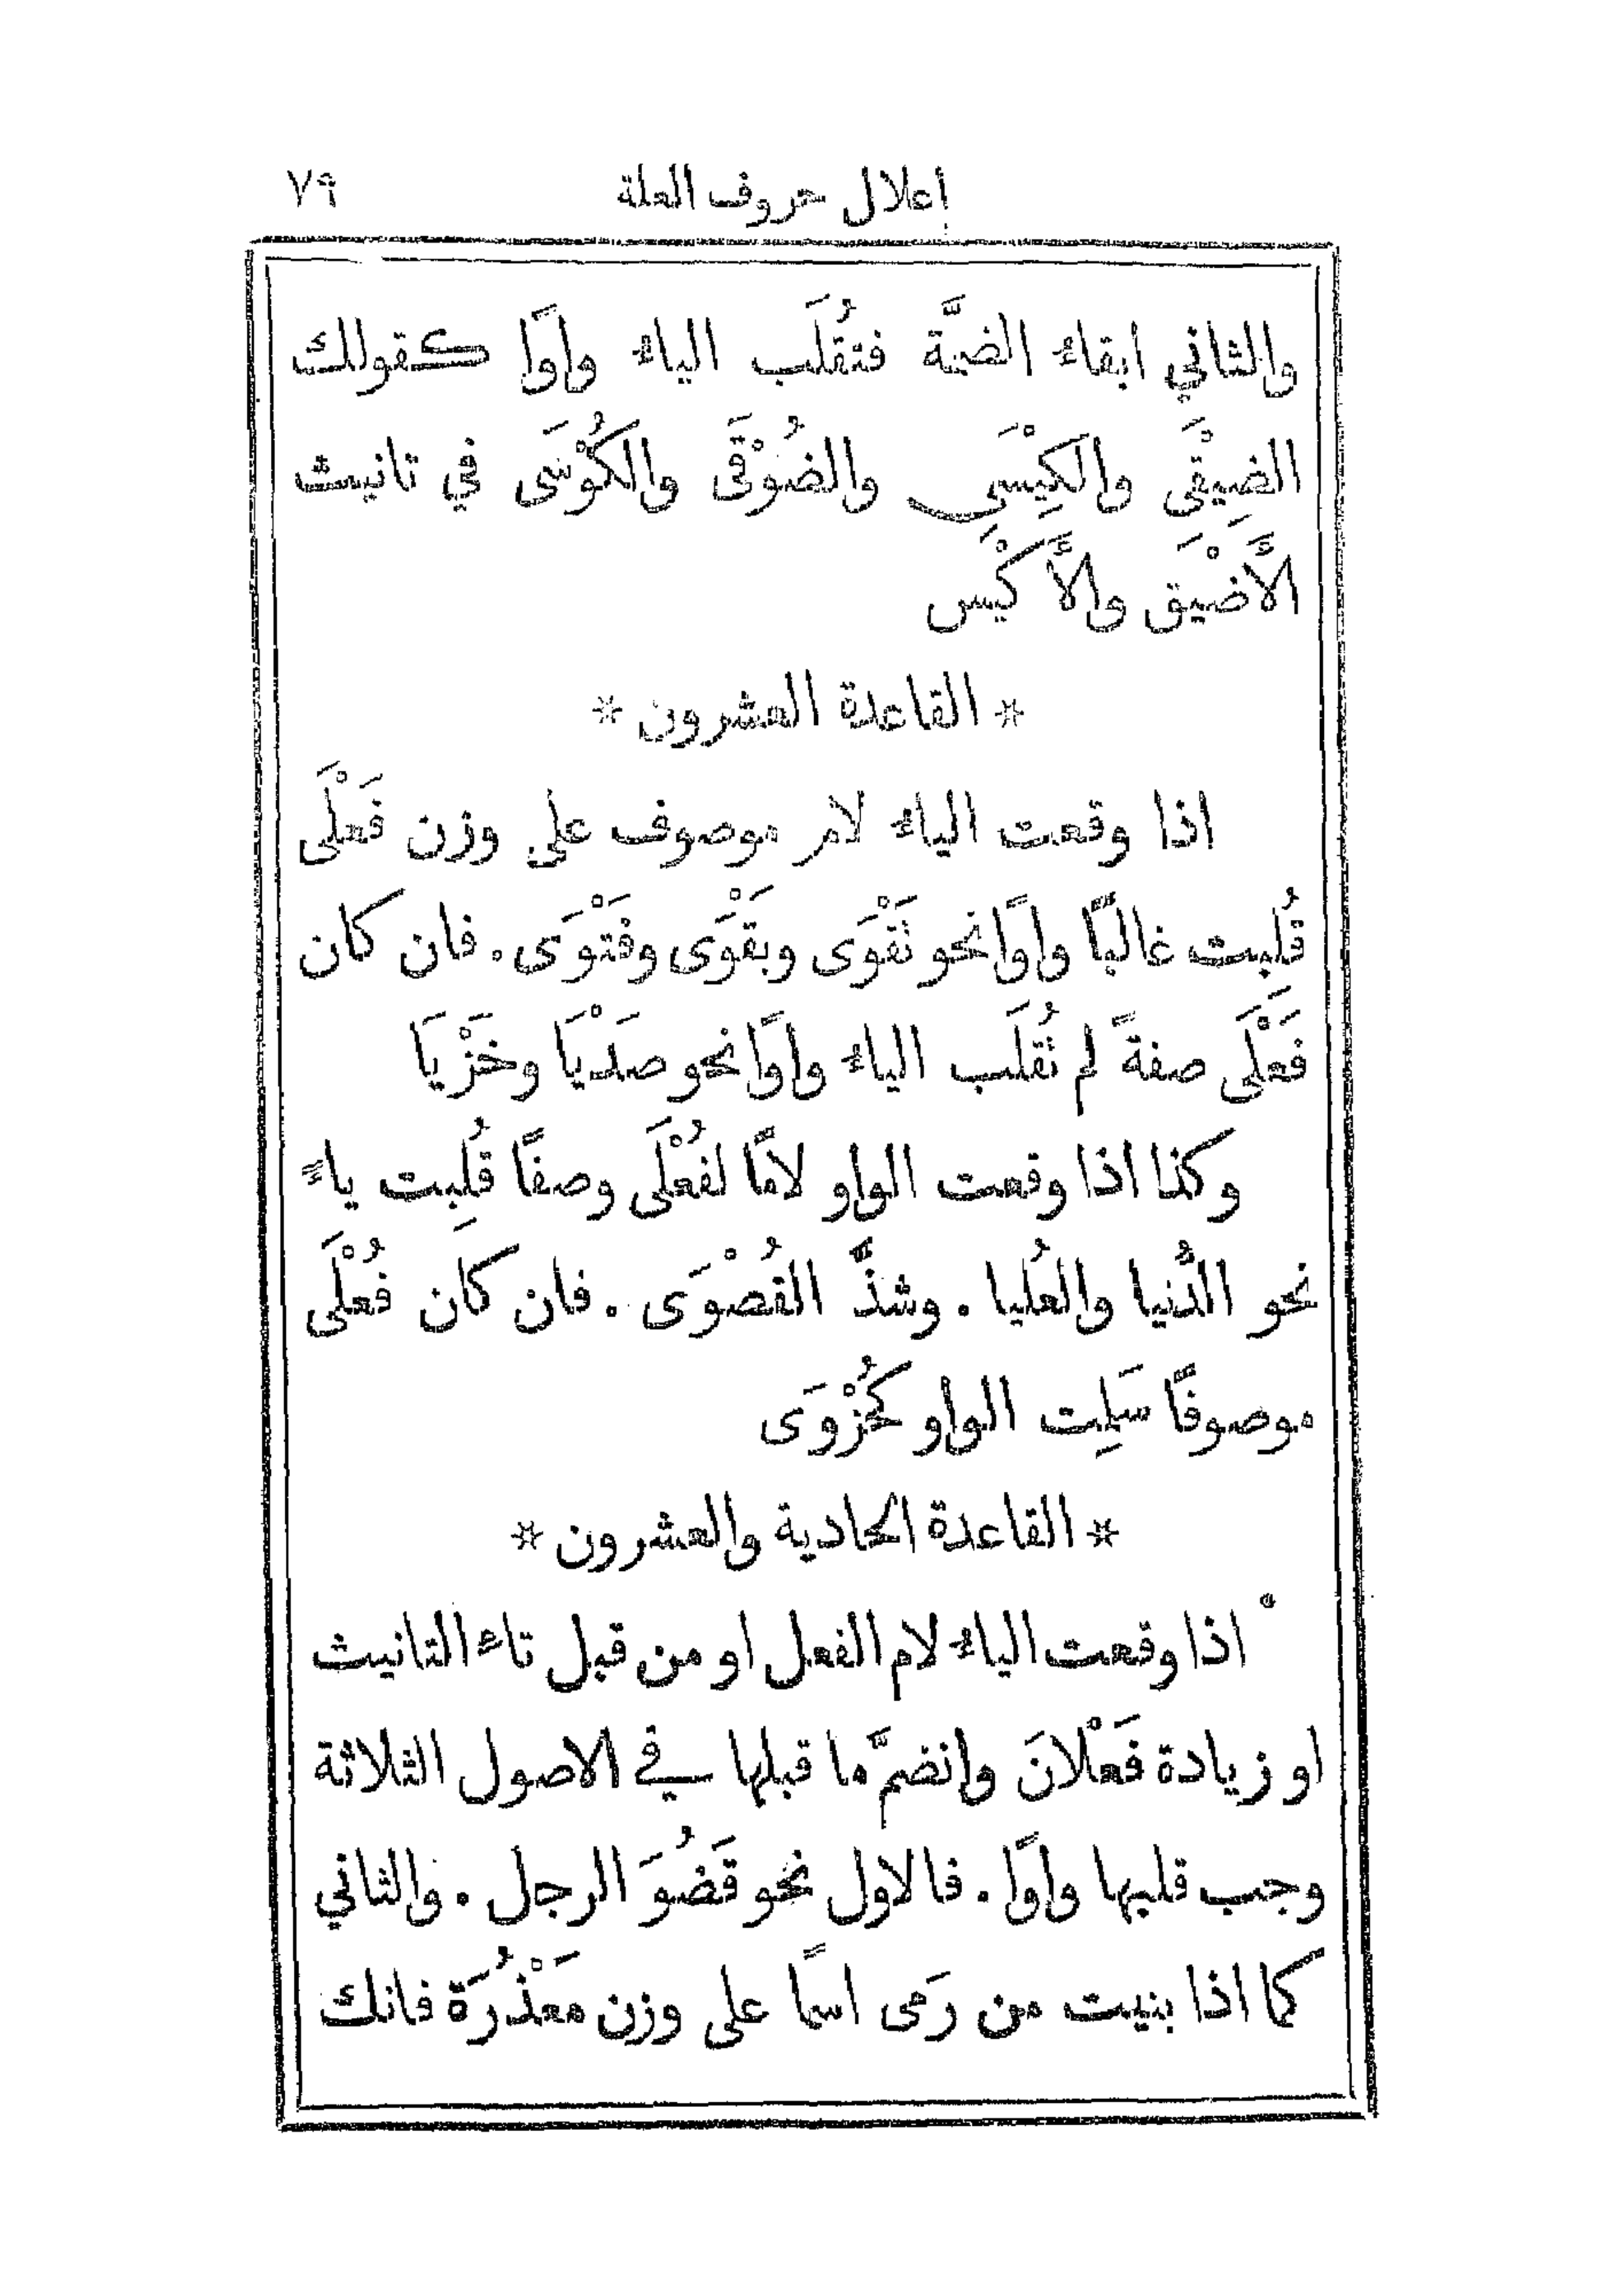 إعلال حروف العلة ٧٩
والثاني ابقاء الضمَّة فتُقلَب الياء واوًا كقولك
الضِيْقَى والكِيْسَى والضُوْقَى والكُوْسَى في تانيث
الأَضْيَق والأَكْيَس
* القاعدة العشرون *
اذا وقعت الياء لام موصوف على وزن فَعْلَى
قُلِبت غالبًا واوًا نحو تَقْوَى وبَقْوَى وفَتْوَى. فان كان
فَعْلَى صفةً لم تُقلَب الياء واوًا نحو صَدْيَا وخَزْيَا
وكذا اذا وقعت الواو لامًا لفُعْلَى وصفًا قُلِبت ياءً
نحو الدُّنيا والعُليا. وشذَّ القُصْوَى. فان كان فُعْلَى
موصوفًا سَلِمت الواو كحُزْوَى
* القاعدة الحادية والعشرون *
اذا وقعت الياء لام الفعل او من قبل تاء التانيث
او زيادة فَعْلانَ وانضمَّ ما قبلها في الاصول الثلاثة
وجب قلبها واوًا. فالاول نحو قَضُوَ الرجل. والثاني
كما اذا بنيت من رَمى اسمًا على وزن مَعْذُرَة فانك